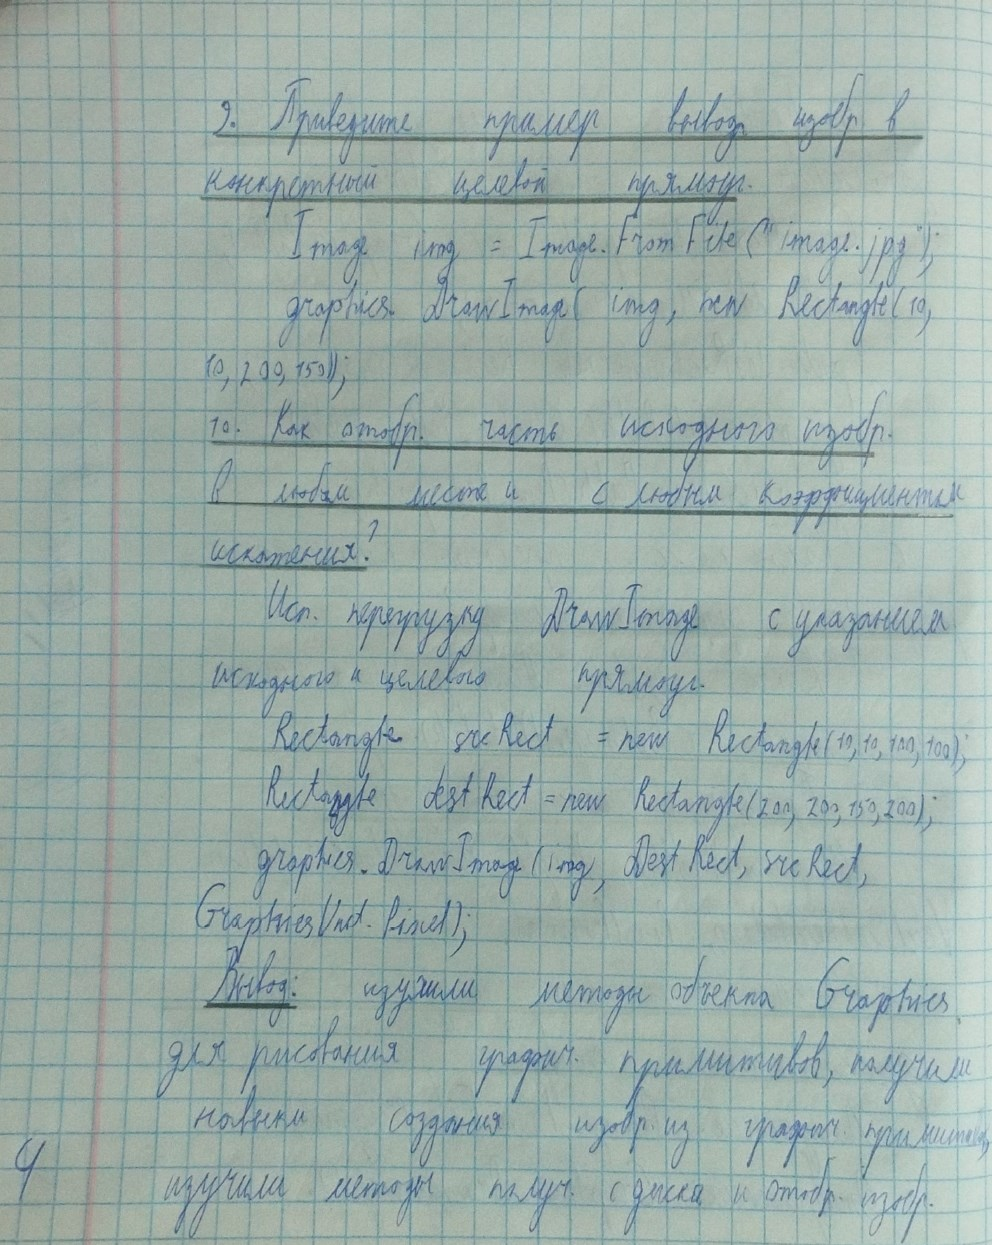 9. Приведите пример вывод изобр в
конкретный целевой прямоуг.
Image img = Image.FromFile("image.jpg");
graphics. DrawImage( img, new Rectangle(10,
10, 200, 150));
10. Как отобр. часть исходного изобр.
в любом месте и с любым коэффициентом
искажения?
Исп. перегрузку DrawImage с указанием
исходного и целевого прямоуг.
Rectangle srcRect = new Rectangle(10, 10, 100, 100);
Rectangle destRect = new Rectangle(200, 200, 150, 200);
graphics.DrawImage(img, DestRect, srcRect,
GraphicsUnit.Pixel);
Вывод: изучили методы объекта Graphics
для рисования графич. примитивов, получили
навыки создания изобр. из графич. примитивов,
изучили методы получ. с диска и отобр. изобр.
4